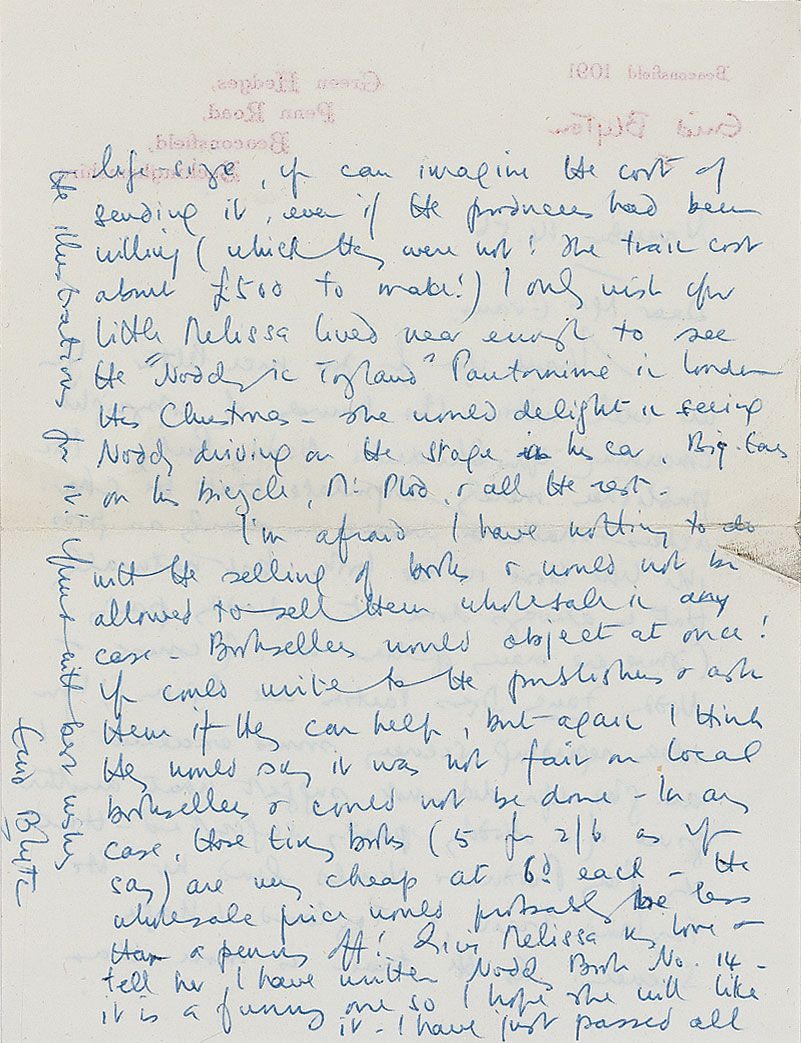 life-size, yr can imagine the cost of
sending it, even if the producers had been
willing (which they were not! The train cost
about £500 to make!) I only wish your
little Melissa lived near enough to see
the "Noddy in Toyland" Pantomime in London
this Christmas - she would delight in seeing
Noddy driving on the stage in his car, Big-Ears
on his bicycle, Mr Plod, & all the rest -
I'm afraid I have nothing to do
with the selling of books & would not be
allowed to sell them wholesale in any
case - Booksellers would object at once!
yr could write to the publishers & ask
them if they can help, but again I think
they would say it was not fair on local
booksellers & could not be done - In any
case, those tiny books (5 for 2/6 as yr
say) are very cheap at 6d each - the
wholesale price would probably be less
than a penny off! Give Melissa my love &
tell her I have written Noddy Book No. 14 -
it is a funny one so I hope she will like
it - I have just passed all
the illustrations for it! Yours with best wishes
Enid Blyton
Beaconsfield 1091
Green Hedges,
Penn Road,
Beaconsfield,
Buckinghamshire
Enid Blyton